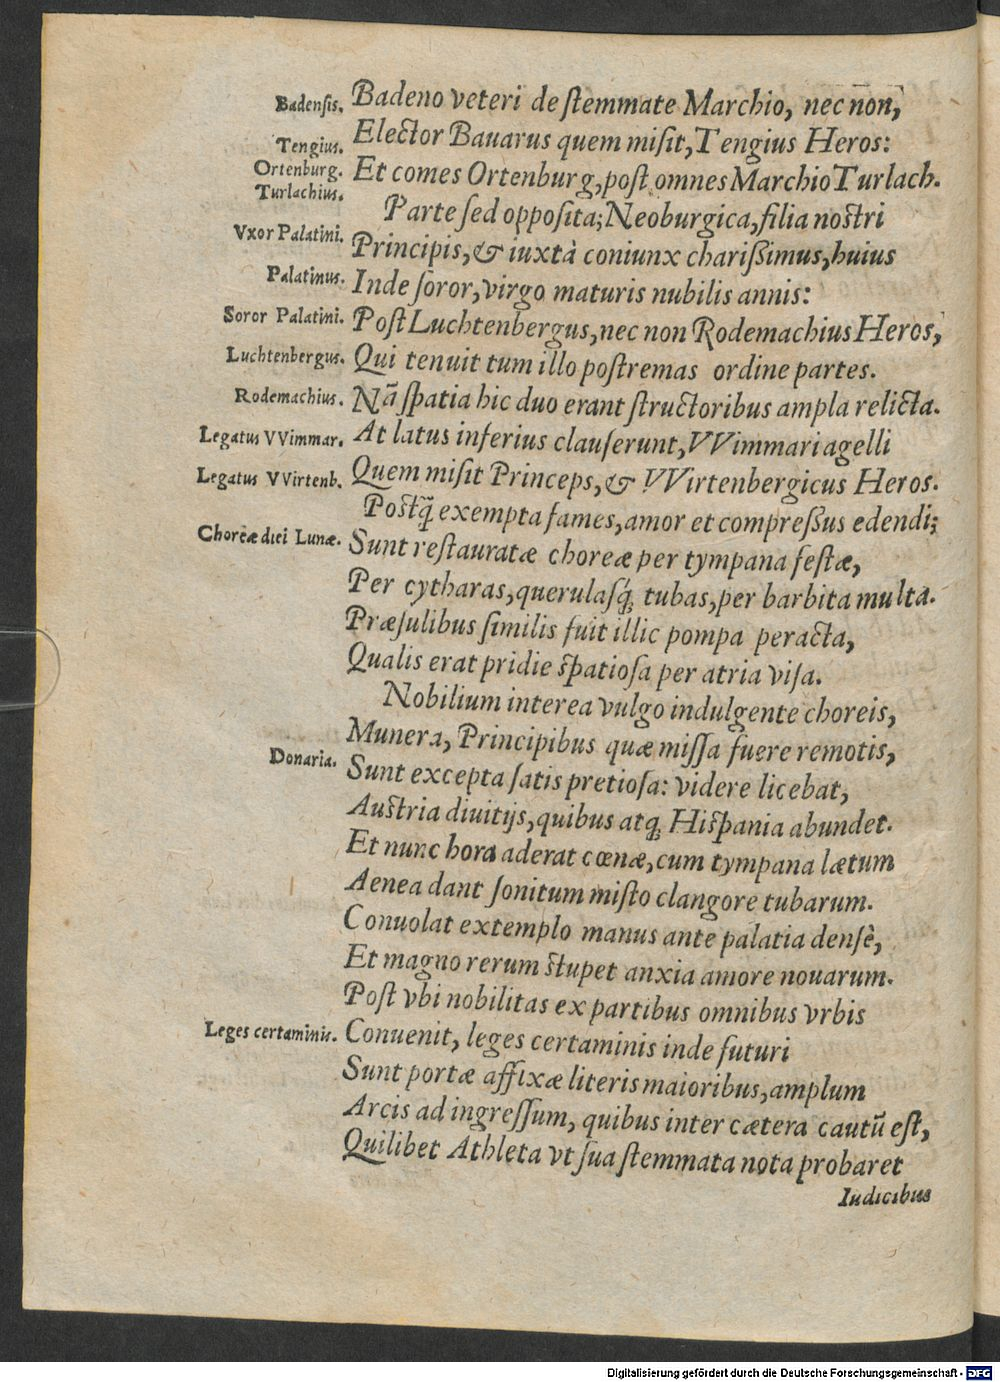 Badensis. Badeno veteri de stemmate Marchio, nec non,
Tengius. Elector Bavarus quem misit, Tengius Heros:
Ortenburg. Et comes Ortenburg, post omnes Marchio Turlach.
Turlachius. Parte sed opposita; Neoburgica, filia nostri
Vxor Palatini. Principis, & iuxtà coniunx charißimus, huius
Palatinus. Inde soror, virgo maturis nubilis annis:
Soror Palatini. Post Luchtenbergus, nec non Rodemachius Heros,
Luchtenbergus. Qui tenuit tum illo postremas ordine partes.
Rodemachius. Nã spatia hic duo erant structoribus ampla relicta.
Legatus VVimmar. At latus inferius clauserunt, VVimmari agelli
Legatus VVirtenb. Quem misit Princeps, & VVirtenbergicus Heros.
Postq̃ exempta fames, amor et compreßus edendi;
Choreæ diei Lunæ. Sunt restauratæ choreæ per tympana festæ,
Per cytharas, querulasq́; tubas, per barbita multa.
Præsulibus similis fuit illic pompa peracta,
Qualis erat pridie spatiosa per atria visa.
Nobilium interea vulgo indulgente choreis,
Munera, Principibus quæ missa fuere remotis,
Donaria. Sunt excepta satis pretiosa: videre licebat,
Austria diuitijs, quibus atq; Hispania abundet.
Et nunc hora aderat cœnæ, cum tympana lætum
Aenea dant sonitum misto clangore tubarum.
Conuolat extemplo manus ante palatia densè,
Et magno rerum stupet anxia amore nouarum.
Post vbi nobilitas ex partibus omnibus vrbis
Leges certaminis. Conuenit, leges certaminis inde futuri
Sunt portæ affixæ literis maioribus, amplum
Arcis ad ingressum, quibus inter cætera cautũ est,
Quilibet Athleta vt sua stemmata nota probaret
Iudicibus
Digitalisierung gefördert durch die Deutsche Forschungsgemeinschaft - DFG